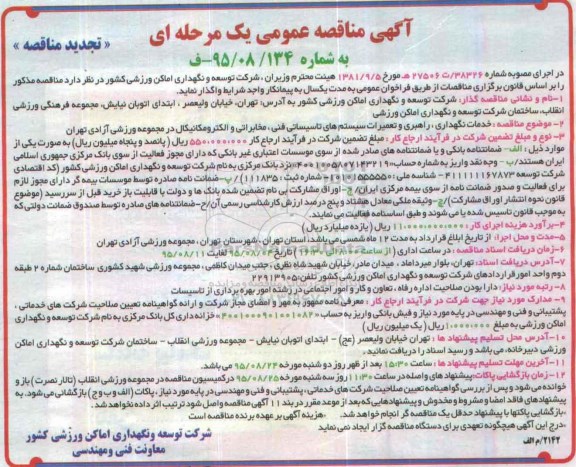 آگهی مناقصه عمومی یک مرحله ای
« تجدید مناقصه »
به شماره ۱۳۴/ ۰۸/ ۹۵-ف
در اجرای مصوبه شماره ۳۸۳۲۶/ت ۲۷۵۰۶ هـ مورخ ۱۳۸۱/۹/۵ هیئت محترم وزیران ، شرکت توسعه و نگهداری اماکن ورزشی کشور در نظر دارد مناقصه مذکور
را بر اساس قانون برگزاری مناقصات از طریق فراخوان عمومی به مدت یکسال به پیمانکار واجد شرایط واگذار نماید.
۱-نام و نشانی مناقصه گذار: شرکت توسعه و نگهداری اماکن ورزشی کشور به آدرس: تهران، خیابان ولیعصر ، ابتدای اتوبان نیایش، مجموعه فرهنگی ورزشی
انقلاب، ساختمان شرکت توسعه و نگهداری اماکن ورزشی
۲-موضوع مناقصه : خدمات نگهداری ، راهبری و تعمیرات سیستم های تاسیساتی فنی ، مخابراتی و الکترومکانیکال در مجموعه ورزشی آزادی تهران
۳- نوع و مبلغ تضمین شرکت در فرآیند ارجاع کار : مبلغ تضمین شرکت در فرآیند ارجاع کار ۵۵۰۰۰۰۰۰۰ ریال ( پانصد و پنجاه میلیون ریال) به صورت یکی از
موارد ذیل : الف- ضمانتنامه بانکی و یا ضمانتنامه های صادر شده از سوی موسسات اعتباری غیر بانکی که دارای مجوز فعالیت از سوی بانک مرکزی جمهوری اسلامی
ایران هستند/ب - وجه نقد واریز به شماره حساب نزد بانک مرکزی به نام شرکت توسعه و نگهداری اماکن ورزشی کشور (کد اقتصادی
شرکت توسعه ۴۱۱۱۱۱۱۶۷۸۷۳ - شناسه ملی : - شماره ثبت : ۱۱۱۸۳۵) /پ-ضمانت نامه صادره توسط موسسات بیمه گر دارای مجوز لازم
برای فعالیت و صدور ضمانت نامه از سوی بیمه مرکزی ایران/ ج- اوراق مشارکت بی نام تضمین شده بانک ها و دولت با قابلیت باز خرید قبل از سررسید (موضوع
قانون نحوه انتشار اوراق مشارکت)/چ-وثیقه ملکی معادل هشتاد و پنج درصد ارزش کارشناسی رسمی آن/ح-ضمانتنامه های صادره توسط صندوق ضمانت دولتی که
به موجب قانون تاسیس شده یا می شوند و طبق اساسنامه فعالیت می نمایند.
۴-برآورد هزینه اجرای کار : ۱۱٫۰۰۰٫۰۰۰٫۰۰۰ ریال ( یازده میلیارد ریال)
۵-مدت و محل اجرا: از تاریخ ابلاغ قرارداد به مدت ۱۲ ماه شمسی می باشد، استان تهران ، شهرستان تهران ، مجموعه ورزشی آزادی تهران
۶-زمان دریافت اسناد مناقصه : در ساعت اداری ( از ساعت ۸:۰۰ الی ۱۶:۳۰) تاریخ ۹۵/۰۸/۰۴ لغایت ۹۵/۰۸/۱۱
۷-آدرس دریافت اسناد: تهران، بلوار میرداماد ، میدان مادر، خیابان شهیدشاه نظری ، جنب میدان کاظمی ، مجموعه ورزشی شهید کشوری ساختمان شماره ۲ طبقه
دوم واحد امور قراردادهای شرکت توسعه و نگهداری اماکن ورزشی کشور تلفن: ۲۲۹۱۳۹۰۵
۸-رتبه مورد نیاز : دارا بودن صلاحیت اداره رفاه ، تعاون و کار و امور اجتماعی در رشته امور بهره برداری از تاسیسات
۹-مدارک مورد نیاز جهت شرکت در فرآیند ارجاع کار : معرفی نامه ممهور به مهر و امضای مجاز شرکت و ارائه گواهینامه تعیین صلاحیت شرکت های خدماتی ،
پشتیبانی و فنی و مهندسی در پایه مورد نیاز و فیش بانکی واریز به حساب خزانه داری کل بانک مرکزی به نام شرکت توسعه و نگهداری
اماکن ورزشی به مبلغ ۱٫۰۰۰٫۰۰۰ ریال ( یک میلیون ریال)
۱۰-آدرس محل تسلیم پیشنهاد ها : تهران خیابان ولیعصر (عج) - ابتدای اتوبان نیایش - مجموعه ورزشی انقلاب - ساختمان شرکت توسعه و نگهداری اماکن
ورزشی دبیرخانه، می باشد و رسید اسناد را دریافت نمایید.
۱۱-آخرین مهلت تسلیم پیشنهاد ها : ساعت ۱۵:۳۰ بعد از ظهر روز دو شنبه مورخه ۹۵/۰۸/۲۴ می باشد.
۱۲-زمان بازگشایی پاکات: پیشنهاد های واصله در ساعت ۱۱:۳۰ روز سه شنبه مورخه ۹۵/۰۸/۲۵ در کمیسیون مناقصه در مجموعه ورزشی انقلاب (تالار نصرت) باز و
خوانده می شود و پس از بررسی گواهینامه تعیین صلاحیت شرکت های خدماتی ، پشتیبانی و فنی و مهندسی در پایه مورد نیاز ، پاکات (الف و ب و ج) بازگشائی می شود. به
پیشنهادهای فاقد امضا و مشروط و مخدوش و پیشنهادهایی که بعد از موعد مقرر در بند ۱۱ آگهی مناقصه واصل شود ترتیب اثر داده نخواهد شد.
-بازگشایی پاکتها با پیشنهاد حداقل یک مناقصه گر انجام خواهد شد. -هزینه آگهی بر عهده برنده مناقصه است
-درج این آگهی هیچگونه تعهدی برای دستگاه مناقصه گزار ایجاد نمی نماید
شرکت توسعه و نگهداری اماکن ورزشی کشور
معاونت فنی و مهندسی
۲۱۴۲/م الف